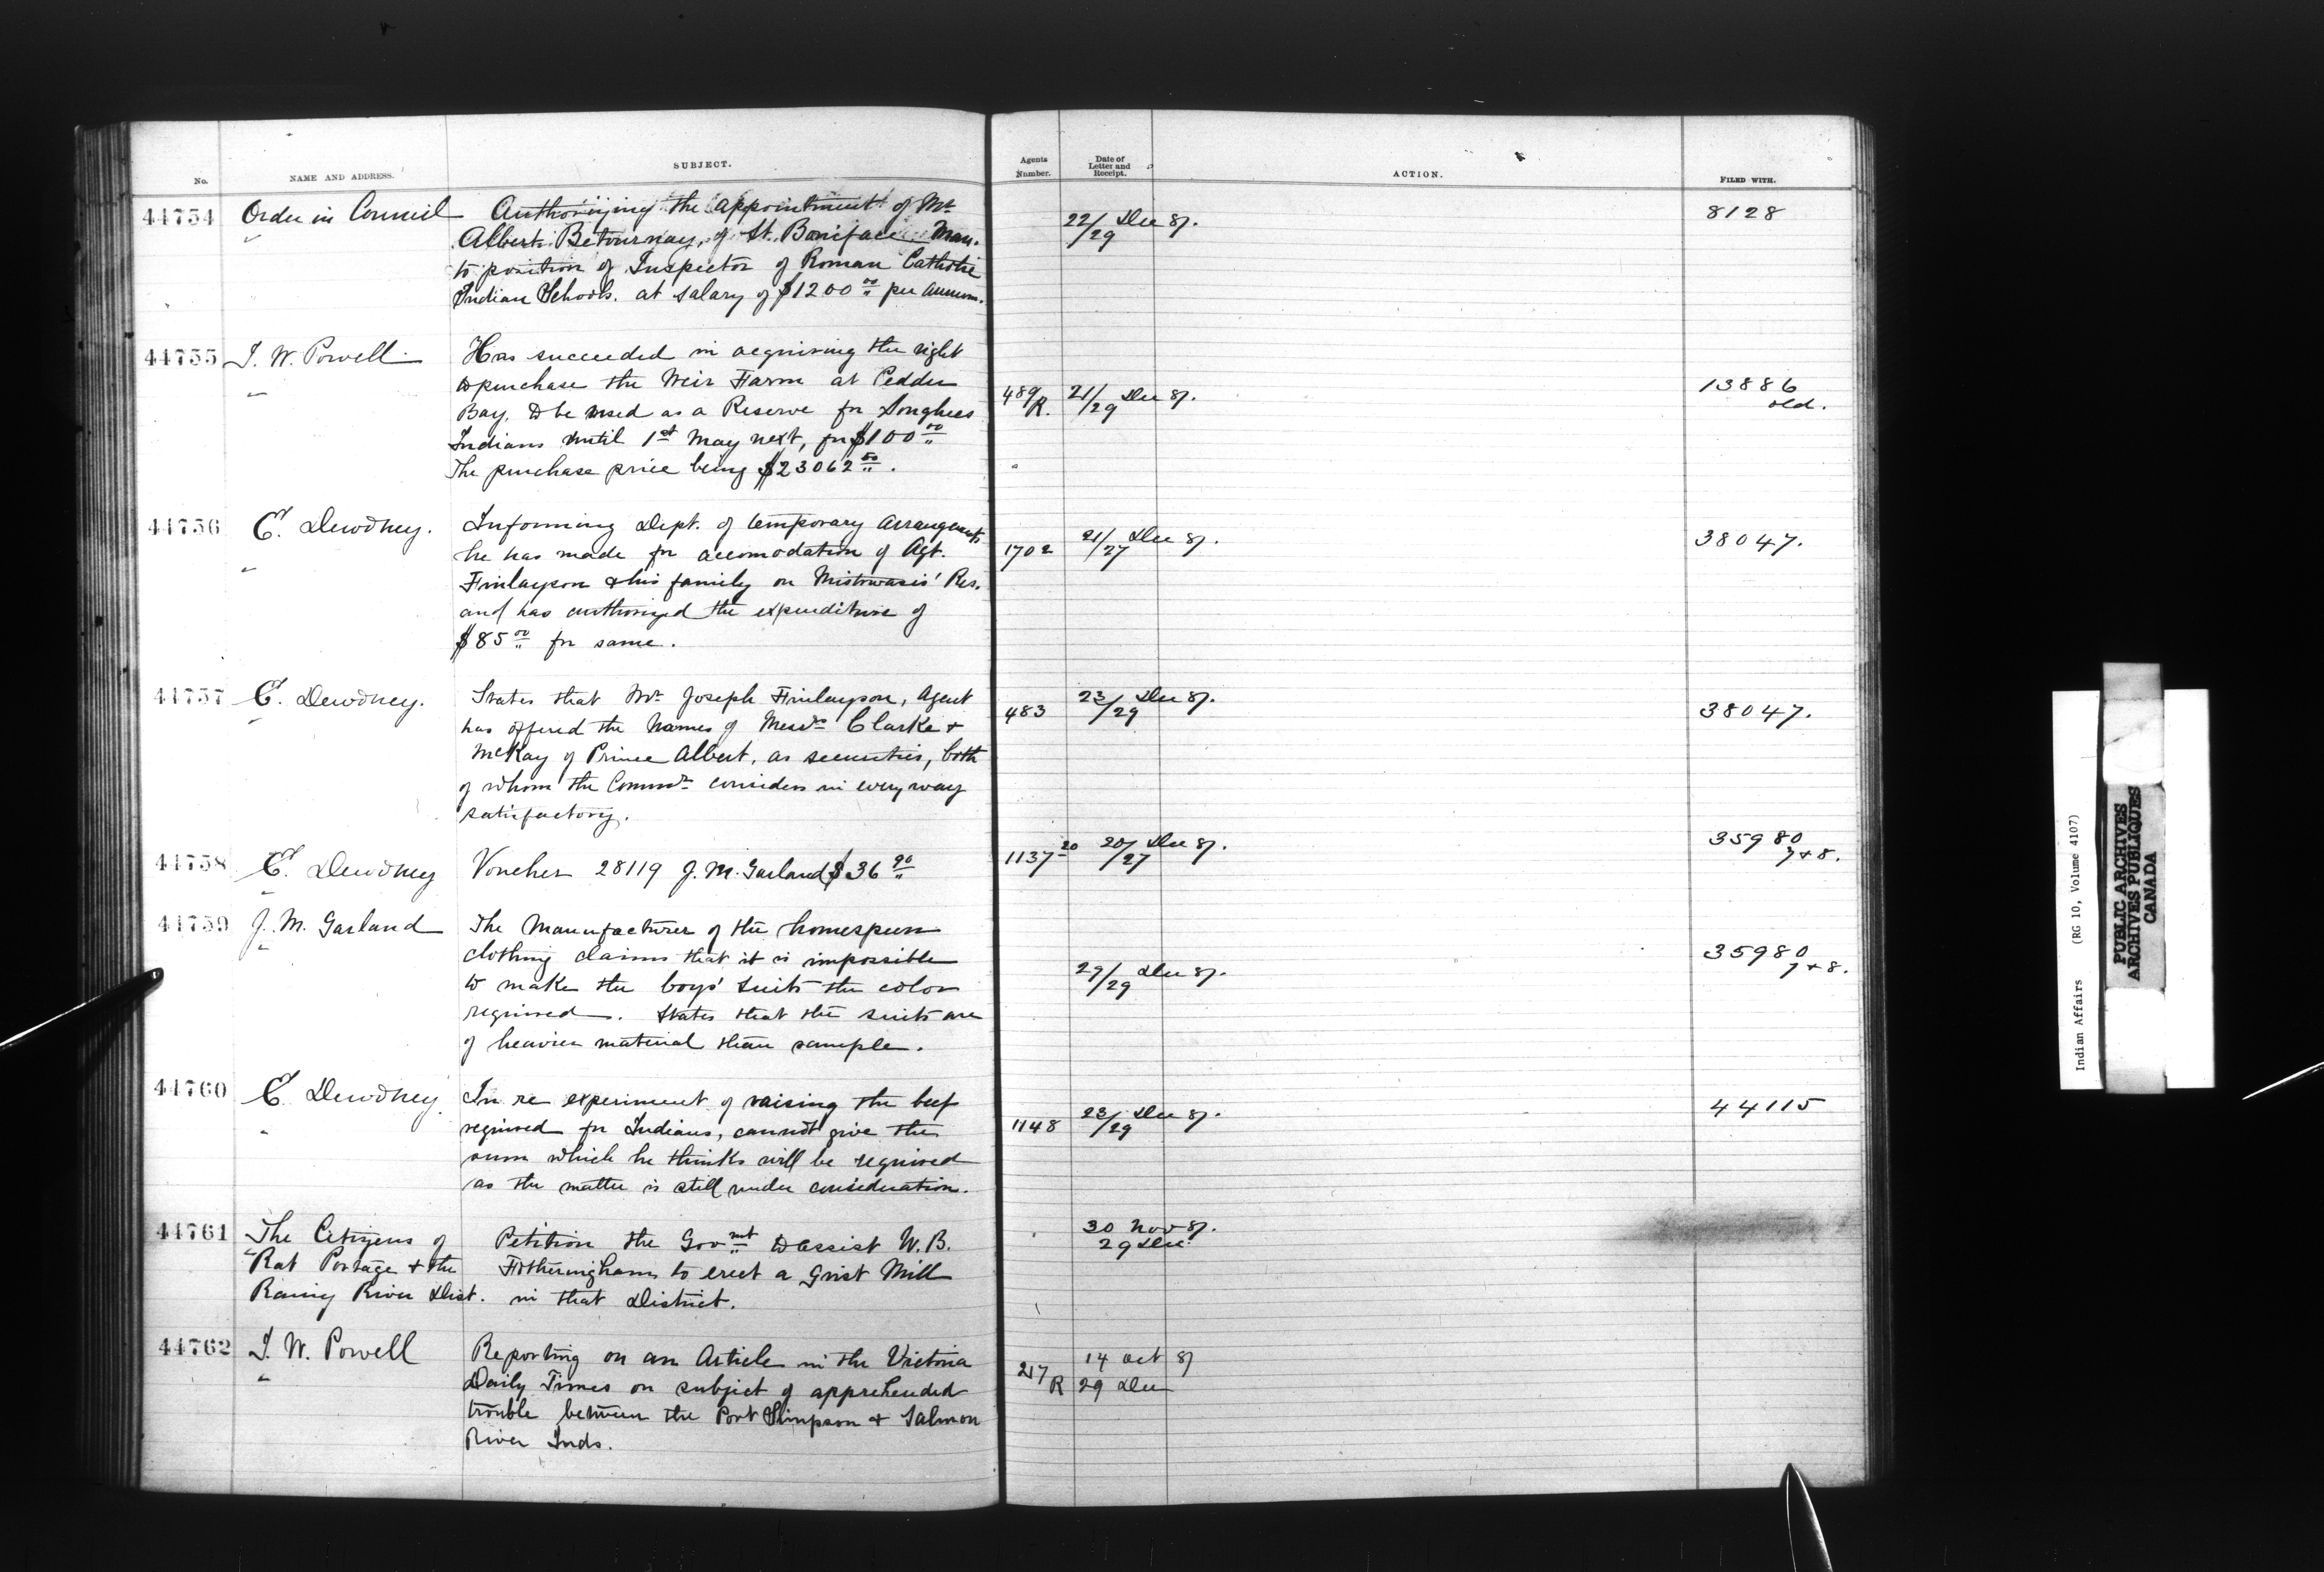 No. NAME AND ADDRESS. SUBJECT. Agents Number. Date of Letter and Receipt. ACTION. FILED WITH.
44754 Order in Council Authorizing the appointment of Mr 22/29 Dec 87. 8128
Albert Betournay, of St. Boniface Man.
to position of Inspector of Roman Catholic
Indian Schools. at salary of $1200 00 per annum.
44755 I. W. Powell Has succeeded in acquiring the right
to purchase the Weir Farm at Pedder 489/R. 21/29 Dec 87. 13886
Bay, to be used as a Reserve for Songhees old.
Indians until 1st May next, for $100 00
The purchase price being $23062 50.
44756 E. Dewdney. Informing Dept. of temporary arrangements
he has made for accomodation of Agt. 1702 21/27 Dec 87. 38047.
Finlayson & his family on Mistowasis' Res.
and has authorized the expenditure of
$85 00 for same.
44757 E. Dewdney. States that Mr Joseph Finlayson, Agent 23/29 Dec 87.
has offered the names of Messrs Clarke & 483 38047.
McKay of Prince Albert, as securities, both
of whom the Commr considers in every way
satisfactory.
44758 E. Dewdney Voucher 28119 J. M. Garland $36 90 1137-20 20/27 Dec 87. 35980
7 & 8.
44759 J. M. Garland The Manufacturer of the homespun
clothing claims that it is impossible 35980
to make the boys' suits the color 29/29 Dec 87. 7 & 8.
required. States that the suits are
of heavier material than sample.
44760 E. Dewdney In re experiment of raising the beef 44115
required for Indians, cannot give the 1148 23/29 Dec 87.
sum which he thinks will be required
as the matter is still under consideration.
44761 The Citizens of Petition the Govmt to assist W. B. 30 Nov 87.
Rat Portage & the Fotheringham to erect a Grist Mill 29 Dec.
Rainy River Dist. in that District.
44762 I. W. Powell Reporting on an Article in the Victoria 14 Oct 87
Daily Times on subject of apprehended 217 R 29 Dec
trouble between the Port Simpson & Salmon
River Inds.
Indian Affairs (RG 10, Volume 4107)
PUBLIC ARCHIVES
ARCHIVES PUBLIQUES
CANADA